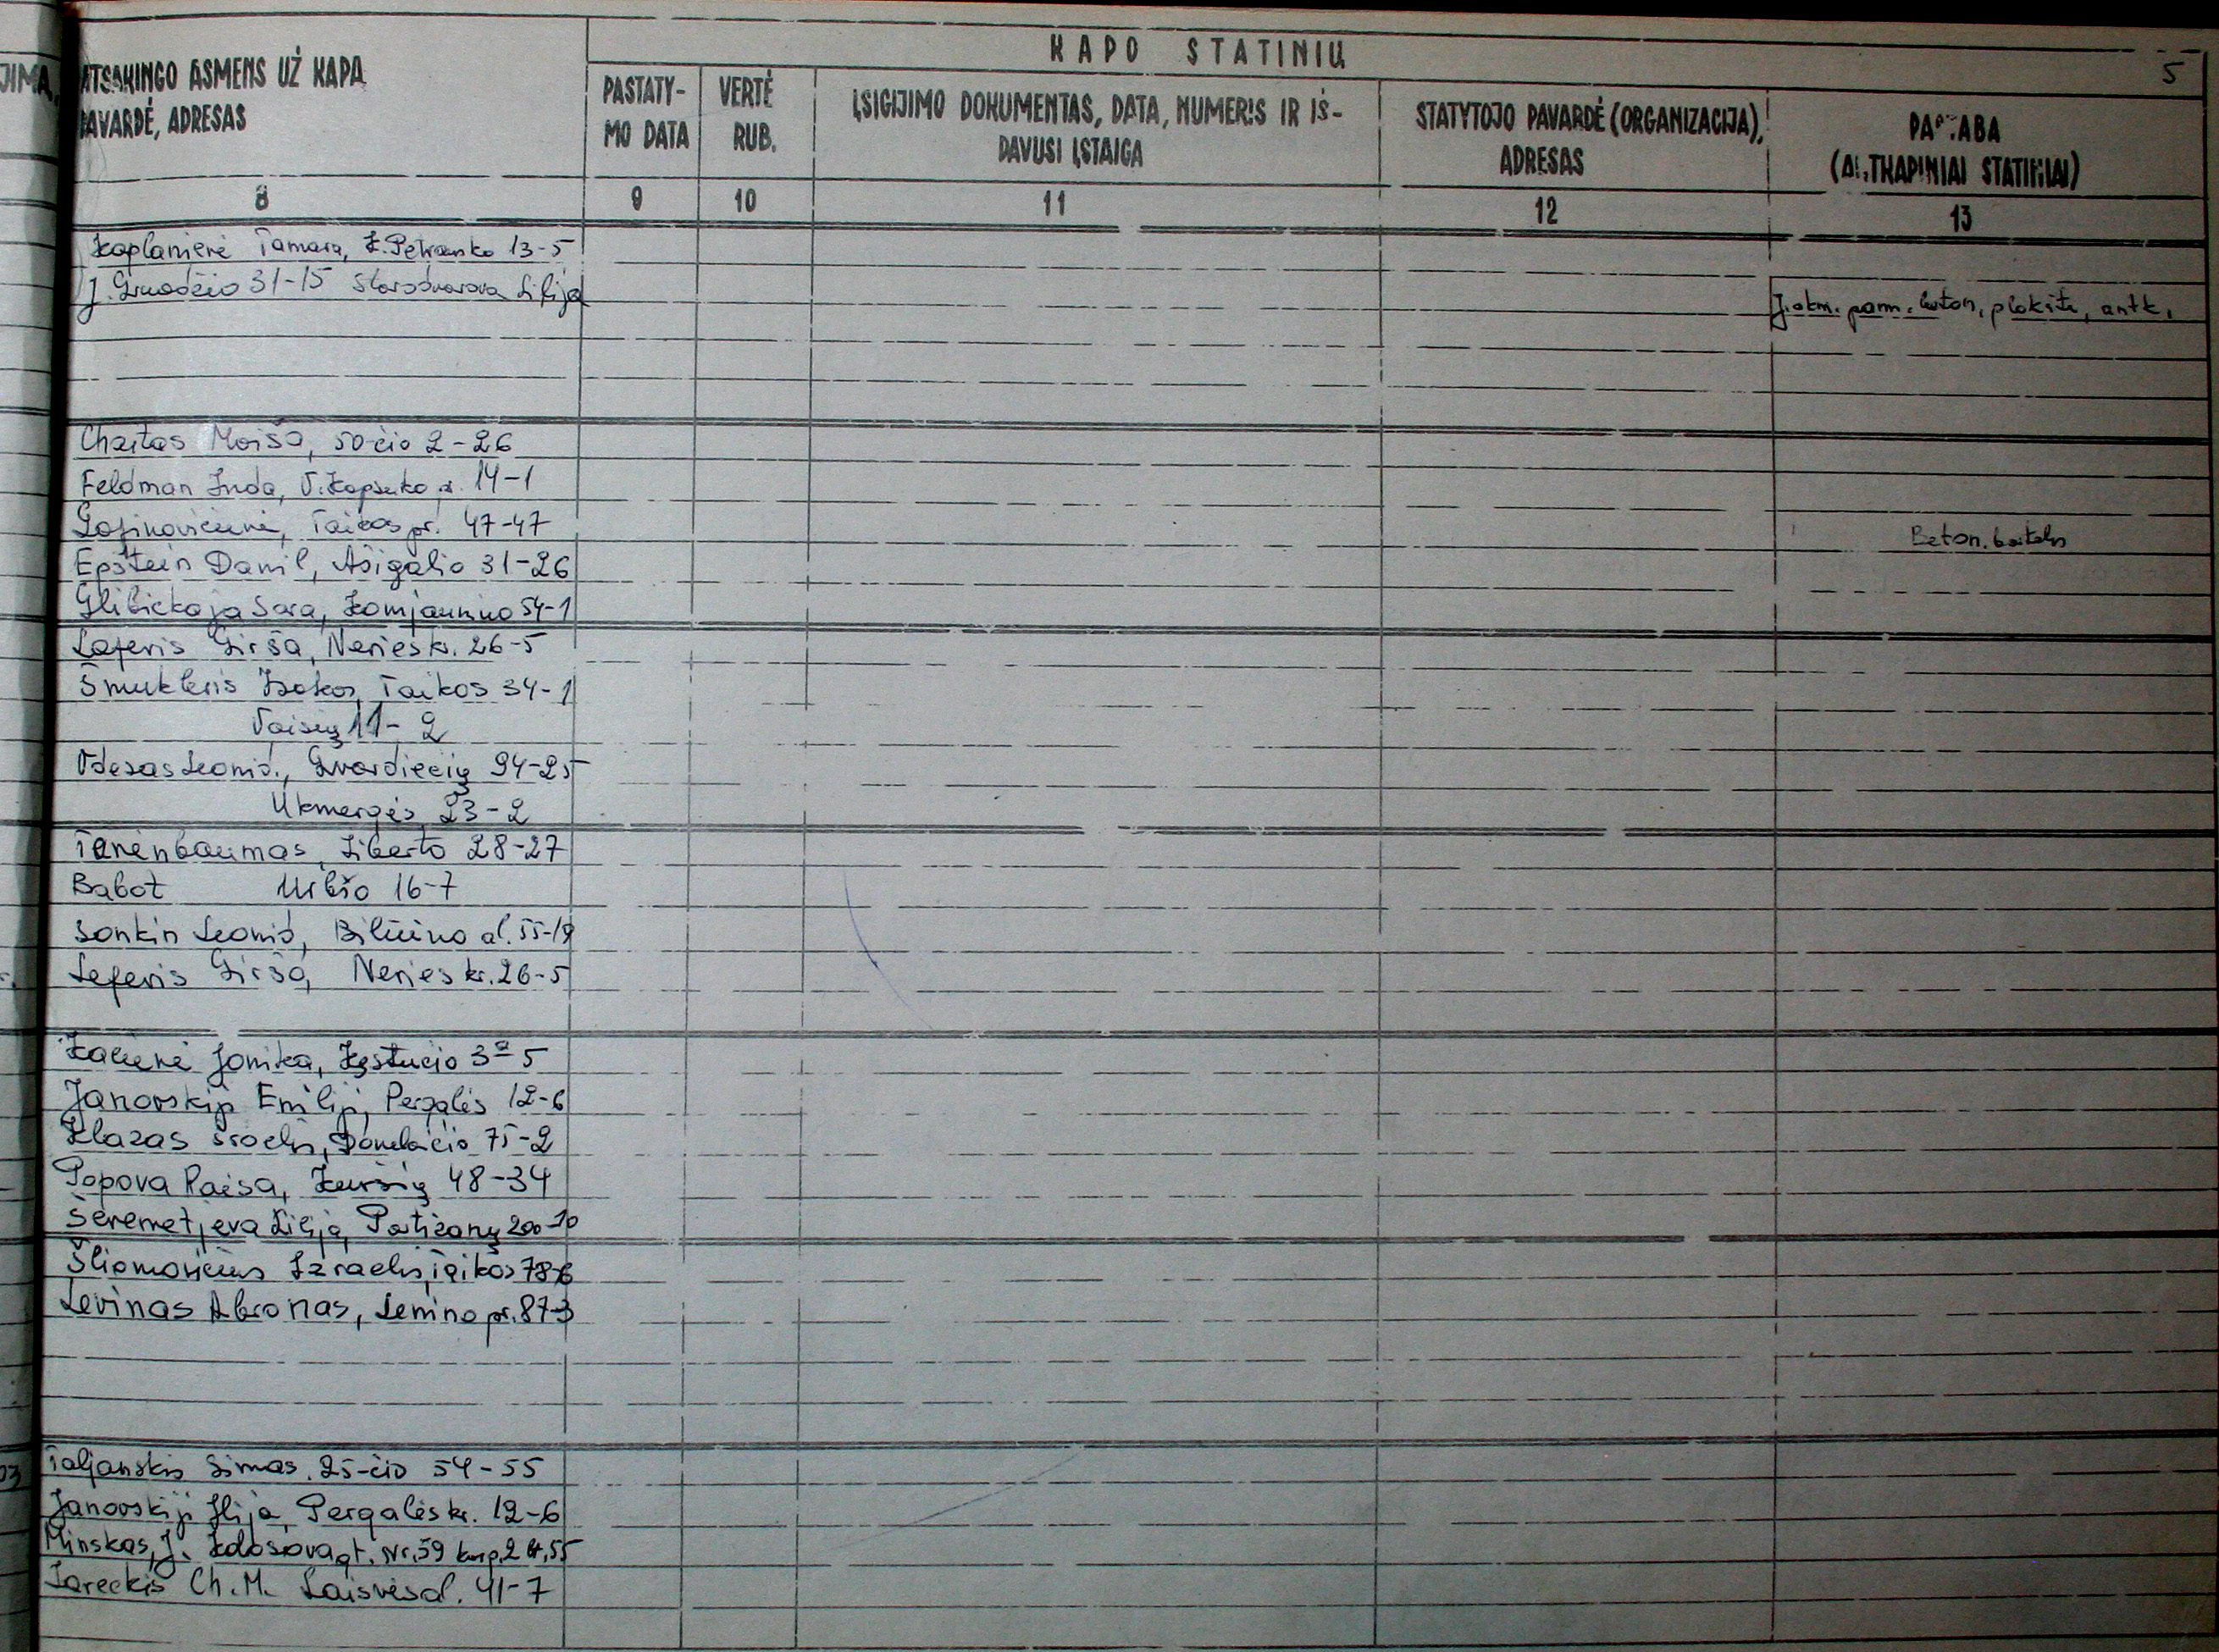 KAPO STATINIŲ
5
JIMA,
ATSAKINGO ASMENS UŽ KAPĄ
PAVARDĖ, ADRESAS
PASTATY-
MO DATA
VERTĖ
RUB.
ĮSIGIJIMO DOKUMENTAS, DATA, NUMERIS IR IŠ-
DAVUSI ĮSTAIGA
STATYTOJO PAVARDĖ (ORGANIZACIJA),
ADRESAS
PASTABA
(ANTKAPINIAI STATINIAI)
8 9 10 11 12 13
Kaplanienė Tamara, K. Petrausko 13-5
J. Gruodžio 31-15 Starodvarova Lilija
J. akm. pam. beton, plokštė, antk.
Chaitas Moiša, 50-čio 2-26
Feldman Juda, V. Kapsuko 14-1
Taikos pr. 47-47
Beton.
Epštein Danil, Ašigalio 31-26
Glibickaja Sara, Komjaunimo 54-1
Laferis Girša, Neries kr. 26-5
Šmukleris Isakas, Taikos 34-1
Vaisių 11-2
Odesas Leonid., Gvardiečių 94-25
Ukmergės 23-2
Tanenbaumas, Liberto 28-27
Babot Urbšo 16-7
Sonkin Leonid, Biliūno al. 55-19
Leferis Girša, Neries kr. 26-5
Jonika, Kęstučio 3ª-5
Janovskij Emilij, Pergalės 12-6
Klazas Sroelis, Donelaičio 75-2
Popova Raisa, Kuršių 48-34
Šeremetjeva Lilija, Partizanų 200-10
Šliomovičius Izraelis, Taikos 78-6
Levinas Abronas, Lenino pr. 87-3
03
Taljanskis Simas, 25-čio 54-55
Janovskij Ilija, Pergalės kr. 12-6
Minskas, J. Kolosova gt. Nr. 59 korp. 2 kt. 55
Zareckis Ch. M. Laisvės al. 41-7